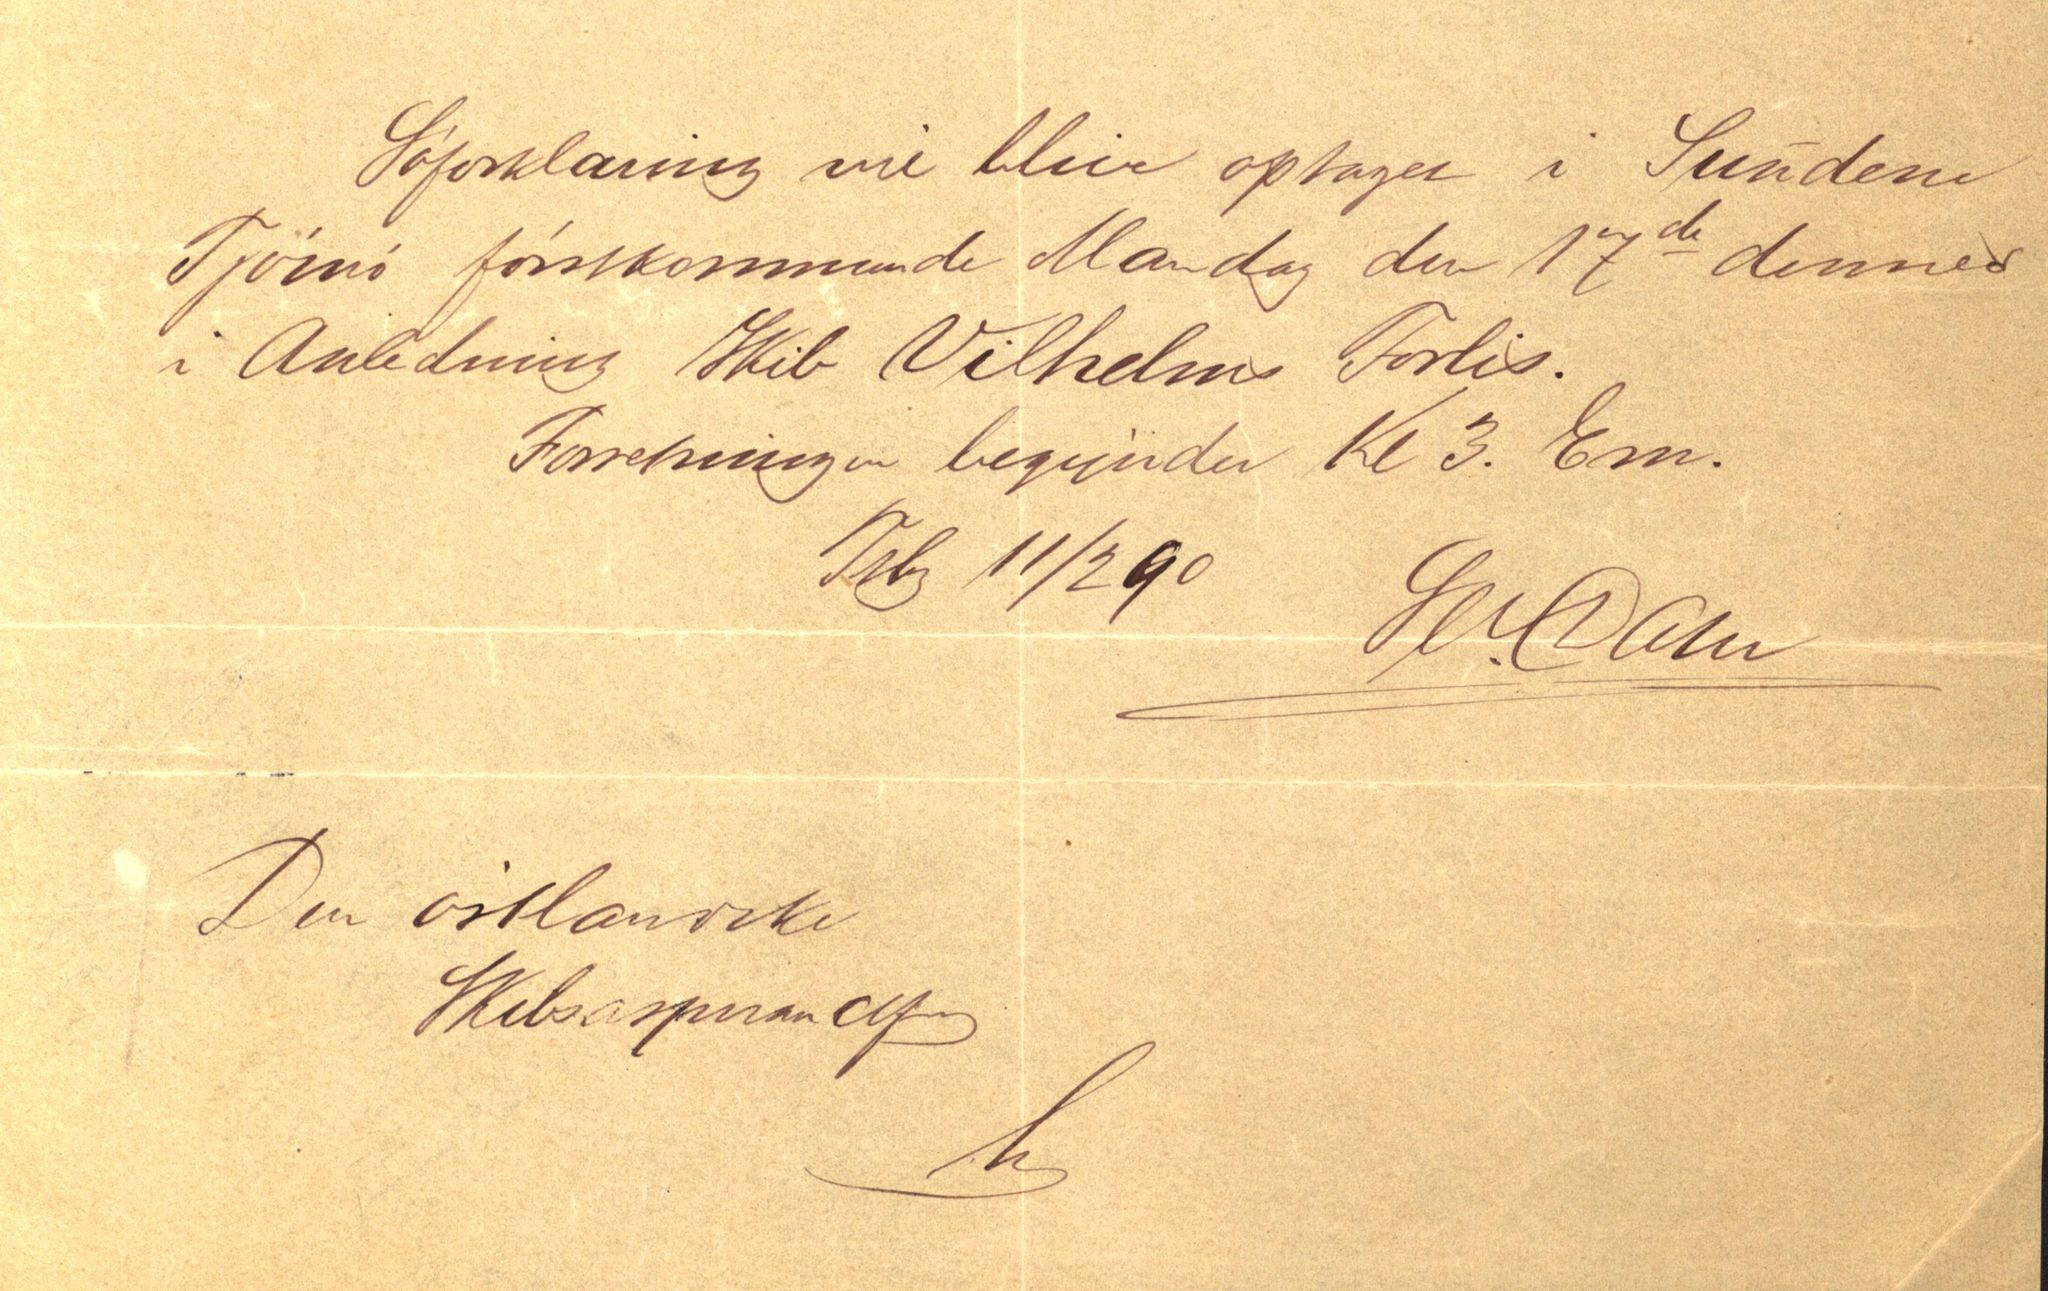 Söforklaring vil blive optaget i Sundene
Tjömö förstkommende Mandag den 17de dennes
i Anledning Skib Vilhelms Forlis.
Forretningen begynder Kl 3. Em.
Tsbg 11/2 90
Den östlandske
Skibsassuranceforng